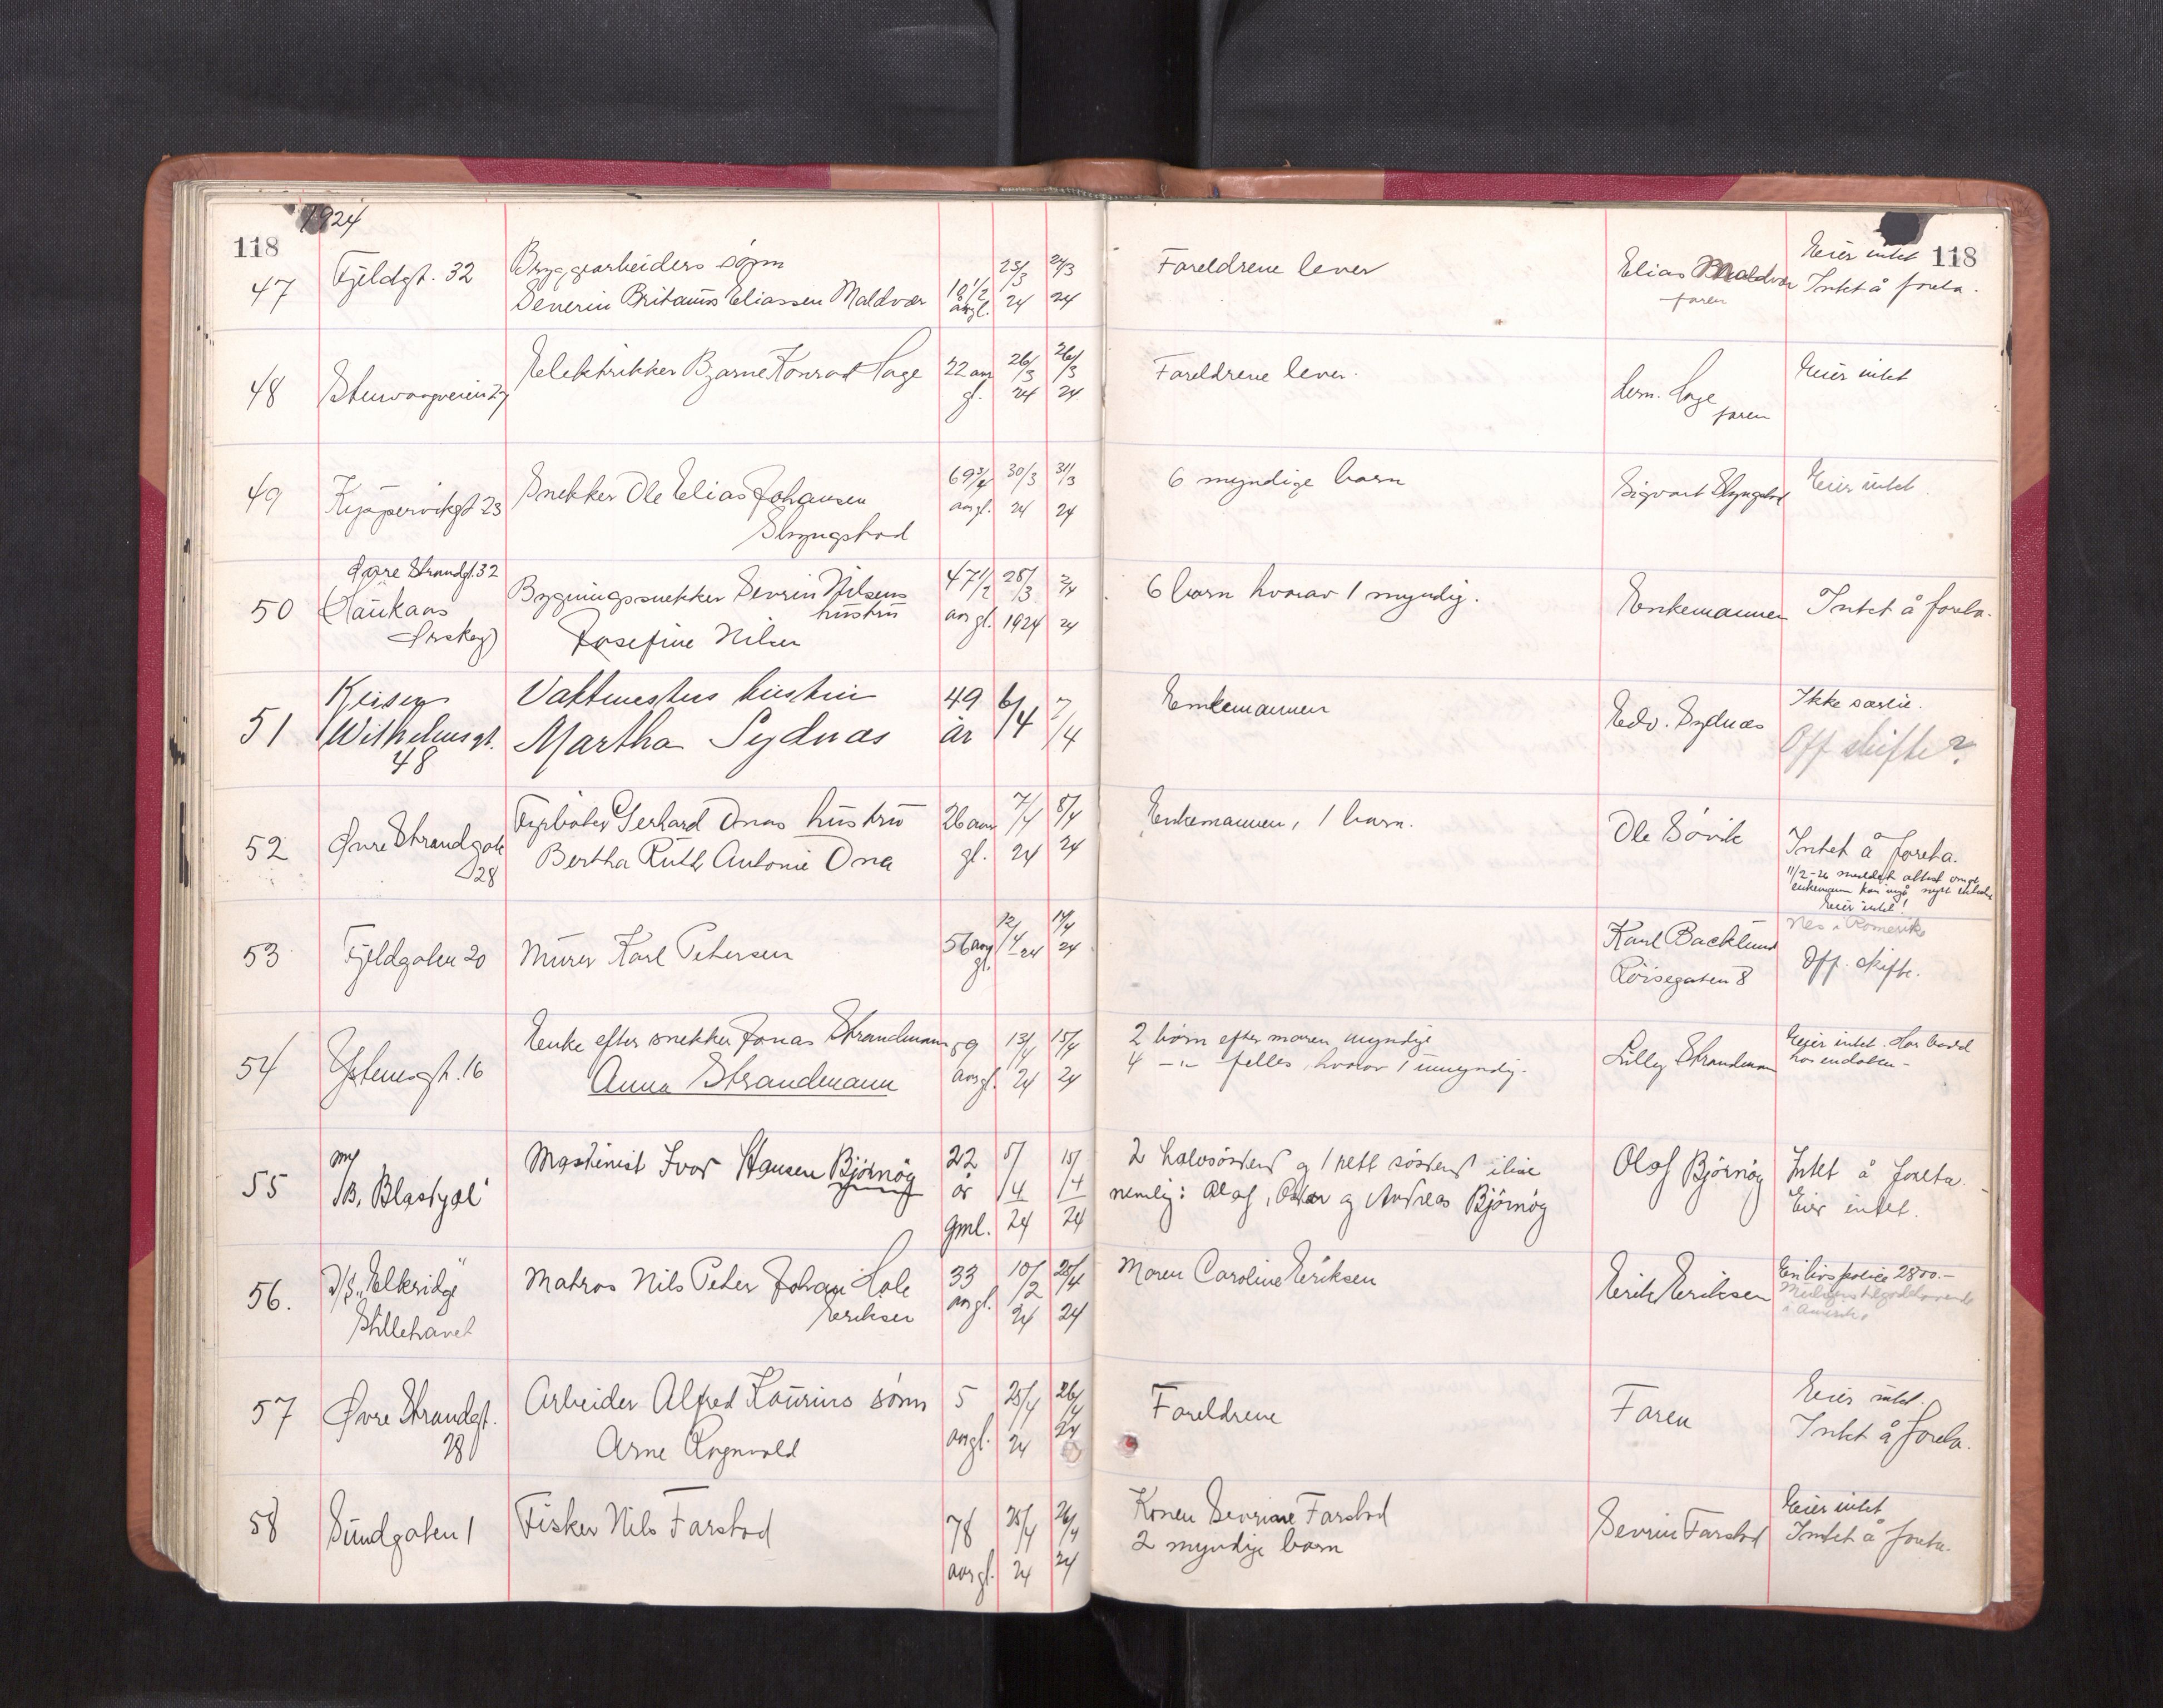 1924
118
118
47
Fjeldgt. 32
Bryggearbeiders sønn
Severin Britanus Eliassen Maldvær
10 1/2
aar gl.
23/3
24
24/3
24
Foreldrene lever
Elias Maldvær
faren
Eier intet
Intet å foreta.
48
Stenvaagveien 27
Elektrikker Bjarne Konrad Hage
22 aar
gl.
26/3
24
26/3
24
Foreldrene lever.
Herm. Hage
faren
Eier intet
49
Kjøpervikgt 23
Snekker Ole Elias Johansen
Slyngstad
69 3/4
aar gl.
30/3
24
31/3
24
6 myndige barn
Sigvart Slyngstad
Eier intet
50
Øvre Strandgt. 32
(Haukaas
Ørskog)
Bygningssnekker Sevrin Nilsens
hustru
Josefine Nilsen
47 1/2
aar gl.
28/3
1924
2/4
24
6 barn hvorav 1 myndig.
Enkemannen
Intet å foreta.
51
Keiser
Wilhelmsgt.
48
Vaktmesters hustru
Martha Sydnæs
49
år
6/4
7/4
Enkemannen
Edv. Sydnæs
Ikke særeie.
Off skifte?
52
Øvre Strandgate
28
Fyrbøter Gerhard Onas hustru
Bertha Ruth Antonie Ona
26 aar
gl.
7/4
24
8/4
24
Enkemannen, 1 barn.
Ole Søvik
Intet å foreta.
11/2-26 meddelt attest om at
enkemann kan inngå nytt ekteskap
Eier intet!
53
Fjeldgaten 20
Murer Karl Petersen
56 aar
gl.
12/4 - 24
14/4
24
Karl Backlund
Røisegaten 8
Nes i Romerike
Off. skifte.
54
Ystenesgt. 16
Enke efter snekker Jonas Strandmann
Anna Strandmann
59
aar gl.
13/4
24
15/4
24
2 børn efter moren myndige
4 -"- felles, hvorav 1 umyndig.
Lilly Strandmann
Eier intet. Har bodd
hos endatter -
55
M/B. "Blastgæl"
Maskinist Ivar Hansen Bjørnøy
22
år
gml.
5/4
24
15/4
24
2 halvsøsken og 1 rett søsken i live
nemlig: Olaf, Oskar og Andreas Bjørnøy
Olaf Bjørnøy
Intet å foreta.
Eier intet.
56.
D/S. "Elkridge"
Stillehavet
Matros Nils Peter Johan Hole
Eriksen
33
aar gl.
10/2
24
25/4
24
Moren Caroline Eriksen
Erik Eriksen
En livspolice 2800.-
i Amerika
57
Øvre Strandgt.
28
Arbeider Alfred Kaurins sønn
Arne Ragnvald
5
aar gl.
25/4
24
26/4
24
Foreldrene
Faren
Eier intet.
Intet å foreta.
58
Sundgaten 1
Fisker Nils Farstad
78
aar gl.
25/4
24
26/4
24
Konen Sevrine Farstad
2 myndige barn
Sevrin Farstad
Eier intet
Intet å foreta.